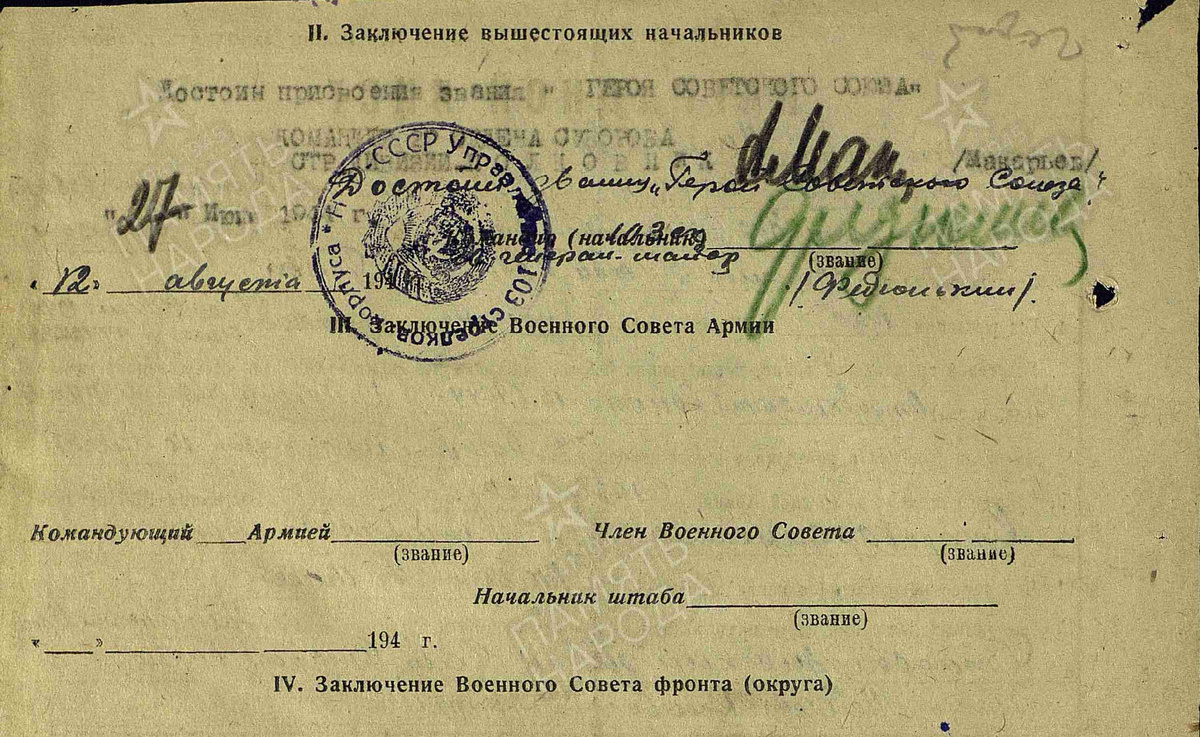 II. Заключение вышестоящих начальников
Достоин присвоения звания " ГЕРОЯ СОВЕТСКОГО СОЮЗА"
КОМАНДИР СУВОРОВА
/Макарьев/
Достоин звания „Герой Советского Союза".
"27" 194 г.
Командир (начальник) 103 ск
генерал-майор (звание)
„12" августа 194 /Федюнькин/.
Н.К.О. СССР Управление 103 стрелков. корпуса
III. Заключение Военного Совета Армии
Командующий ___ Армией ___ Член Военного Совета ___
(звание) (звание)
Начальник штаба ___
(звание)
«___» ___ ___ 194 г.
IV. Заключение Военного Совета фронта (округа)
ПАМЯТЬ НАРОДА